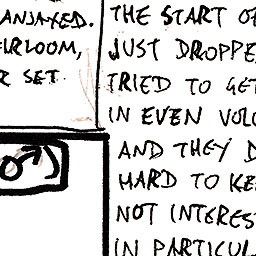 EIRLOOM,
R SET.
THE START OF
JUST DROPPE
TRIED TO GET
IN EVEN VOLU
AND THEY D
HARD TO KE
NOT INTERES
IN PARTICUL